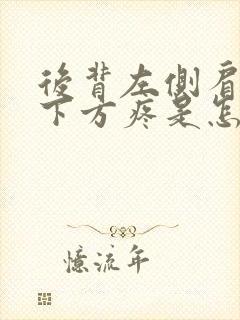 後背左側肩
下方疼是怎
憶流年